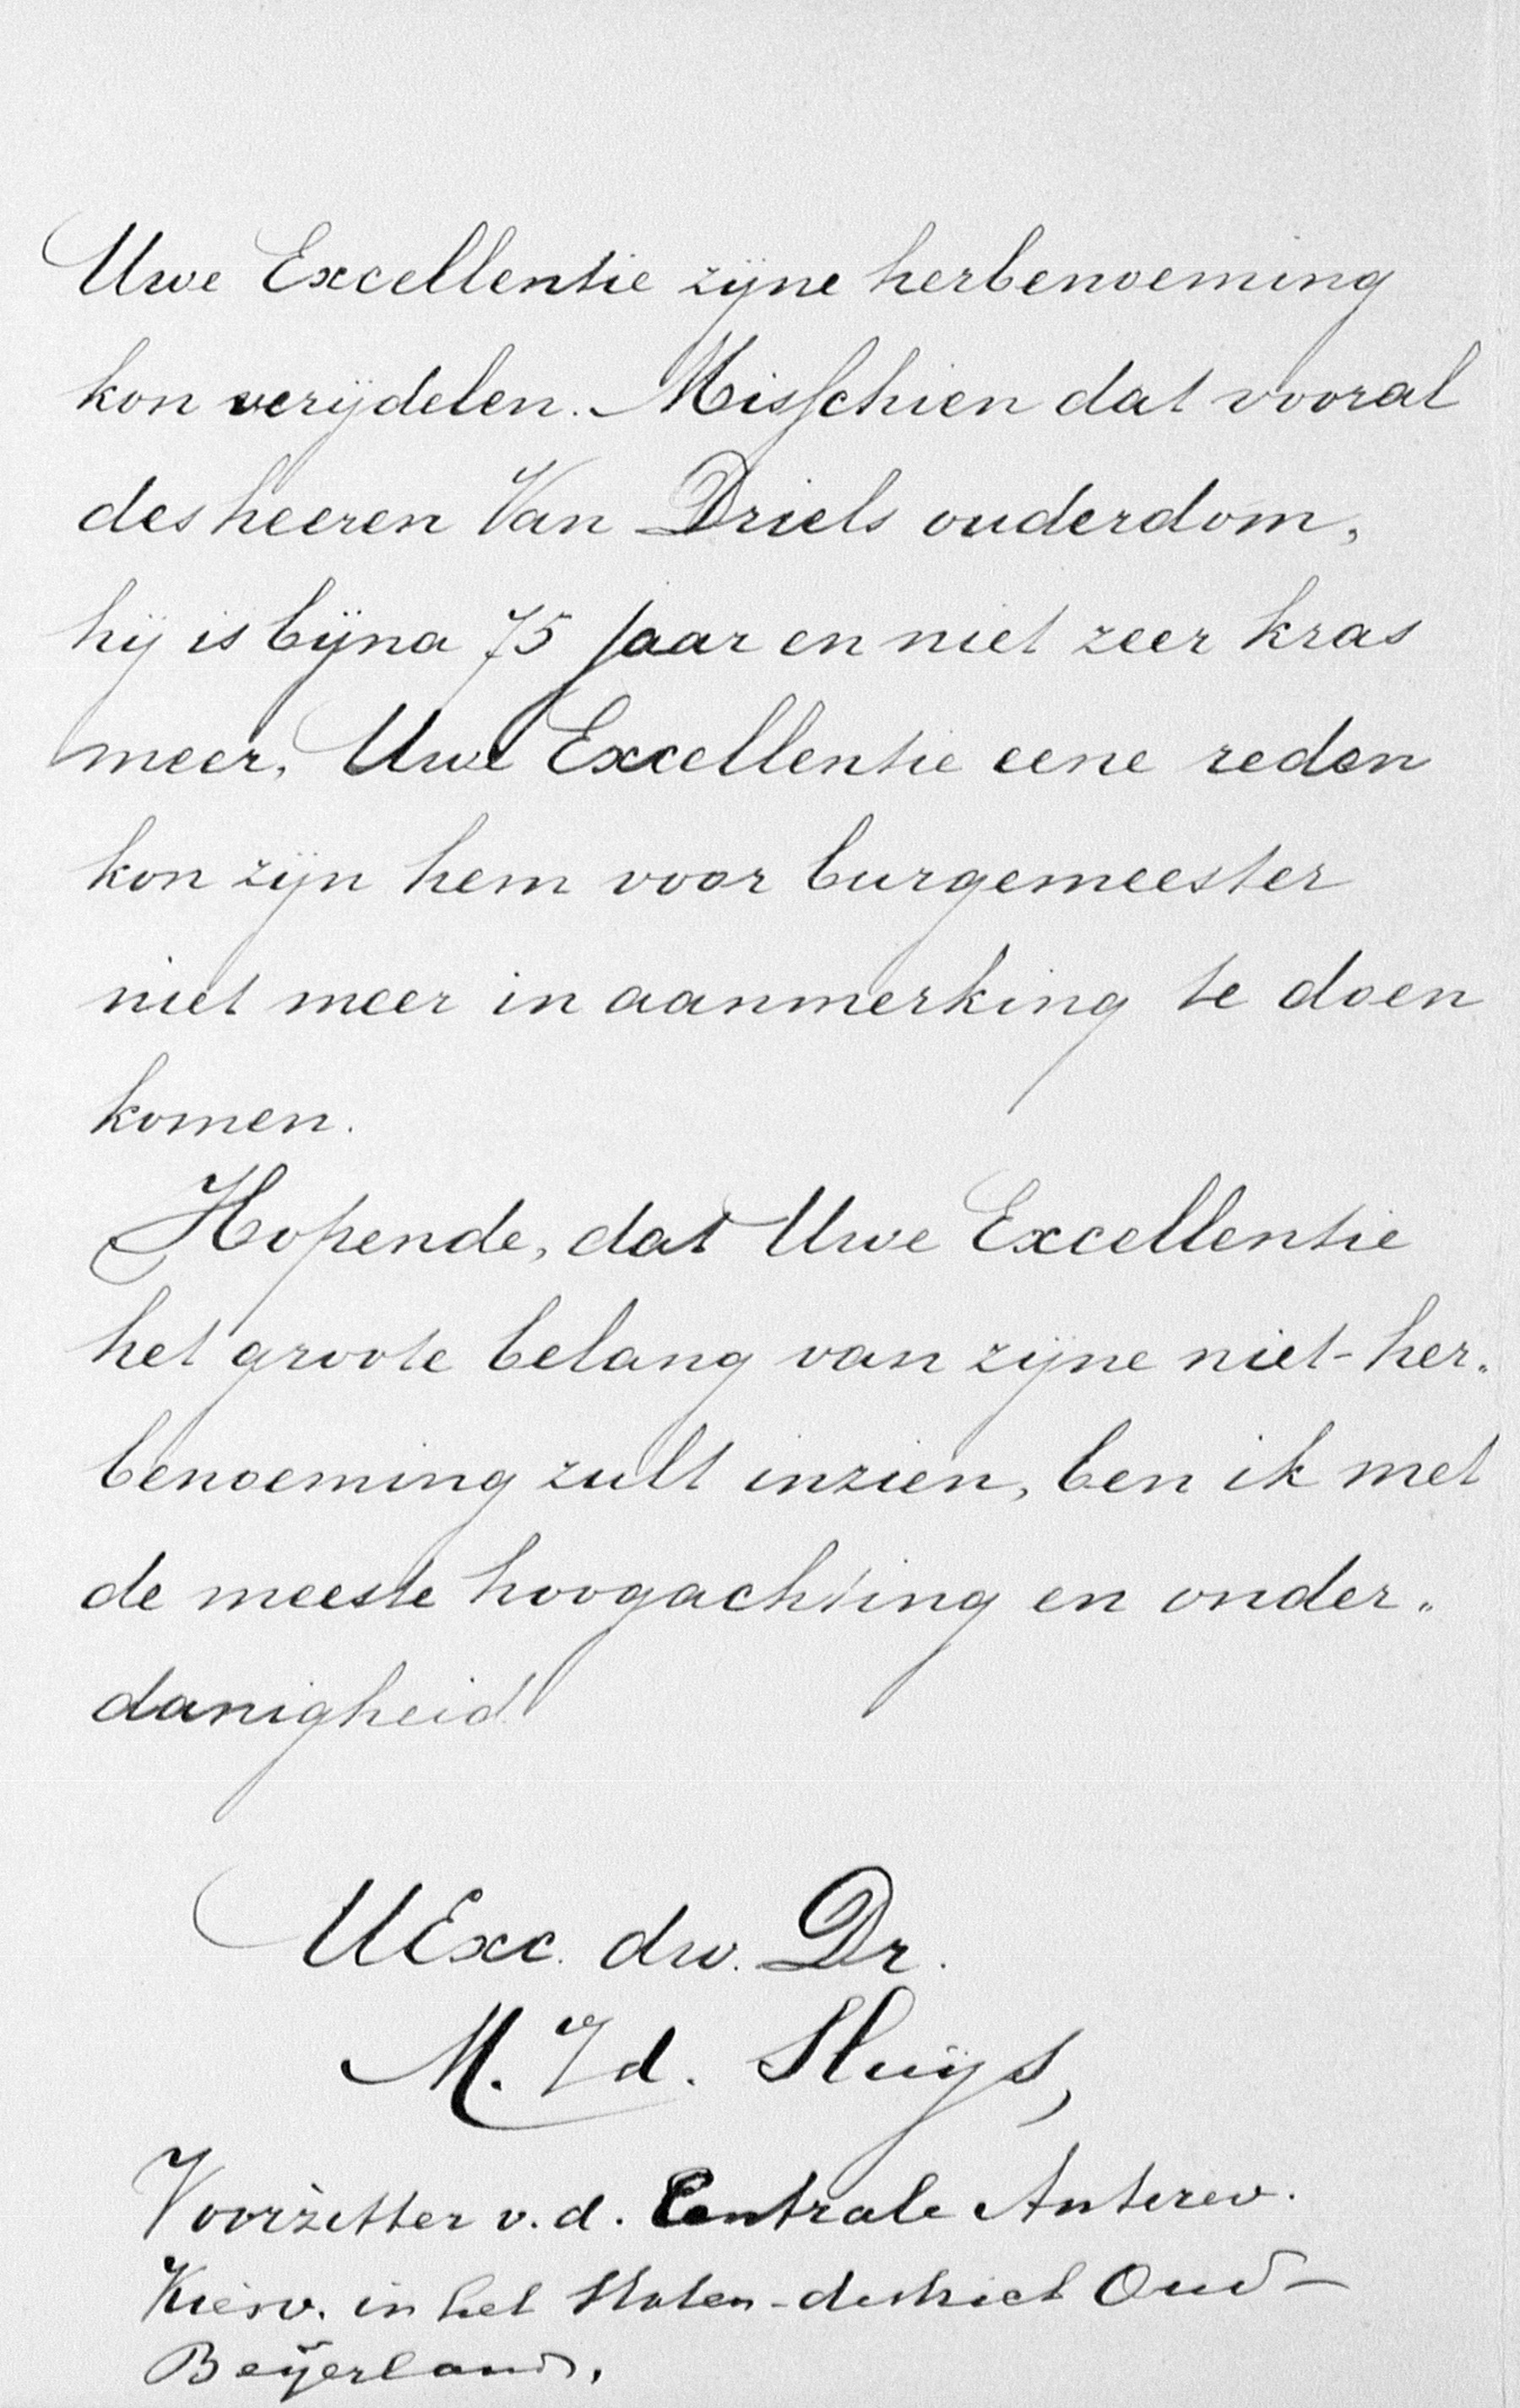 Uwe Excellentie zijne herbenoeming
kon verijdelen. Misschien dat vooral
des heeren Van Driels ouderdom,
hij is bijna 75 jaar en niet zeer kras
meer, Uwe Excellentie eene reden
kon zijn hem voor burgemeester
niet meer in aanmerking te doen
komen.
Hopende, dat Uwe Excellentie
het groote belang van zijne niet-her„
benoeming zult inzien, ben ik met
de meeste hoogachting en onder„
danigheid
UExc. dw. Dr.
M. Id. Sluijs,
Voorzitter v.d. Centrale Antirev.
Kiesv. in het Staten-district Oud-
Beijerland.